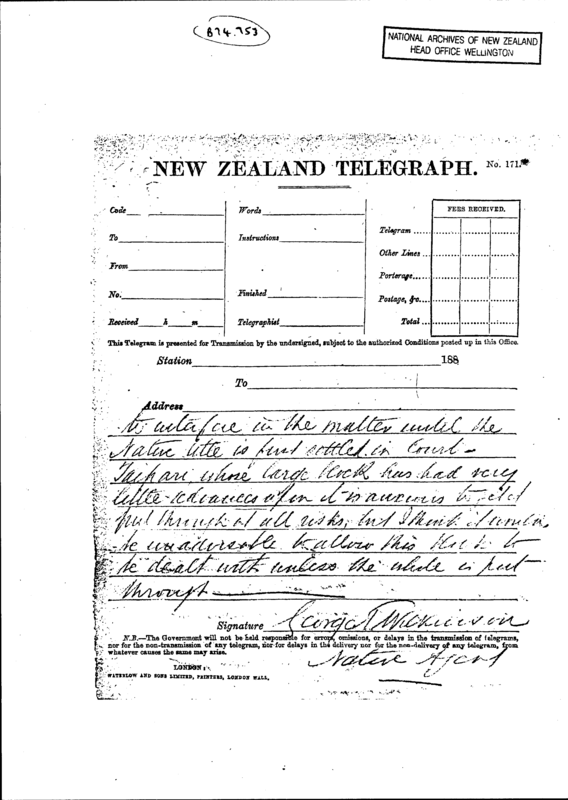 B74.753
NATIONAL ARCHIVES OF NEW ZEALAND
HEAD OFFICE WELLINGTON
NEW ZEALAND TELEGRAPH. No. 171.
Code
To
From
No.
Received h m
Words
Instructions
Finished
Telegraphist
FEES RECEIVED.
Telegram
Other Lines
Porterage
Postage, &c.
Total
This Telegram is presented for Transmission by the undersigned, subject to the authorized Conditions posted up in this Office.
Station 188
To
Address
to interfere in the matter until the
Native title is first settled in Court –
Taipari whose large block has had very
little advances upon it is anxious to get it
put through at all risks, but I think it would
be unadvisable to allow this block to
be dealt with unless the whole is put
through
Signature George T Wilkinson
Native Agent
N.B.—The Government will not be held responsible for errors, omissions, or delays in the transmission of telegrams,
nor for the non-transmission of any telegram, nor for delays in the delivery nor for the non-delivery of any telegram, from
whatever causes the same may arise.
LONDON:
WATERLOW AND SONS LIMITED, PRINTERS, LONDON WALL.